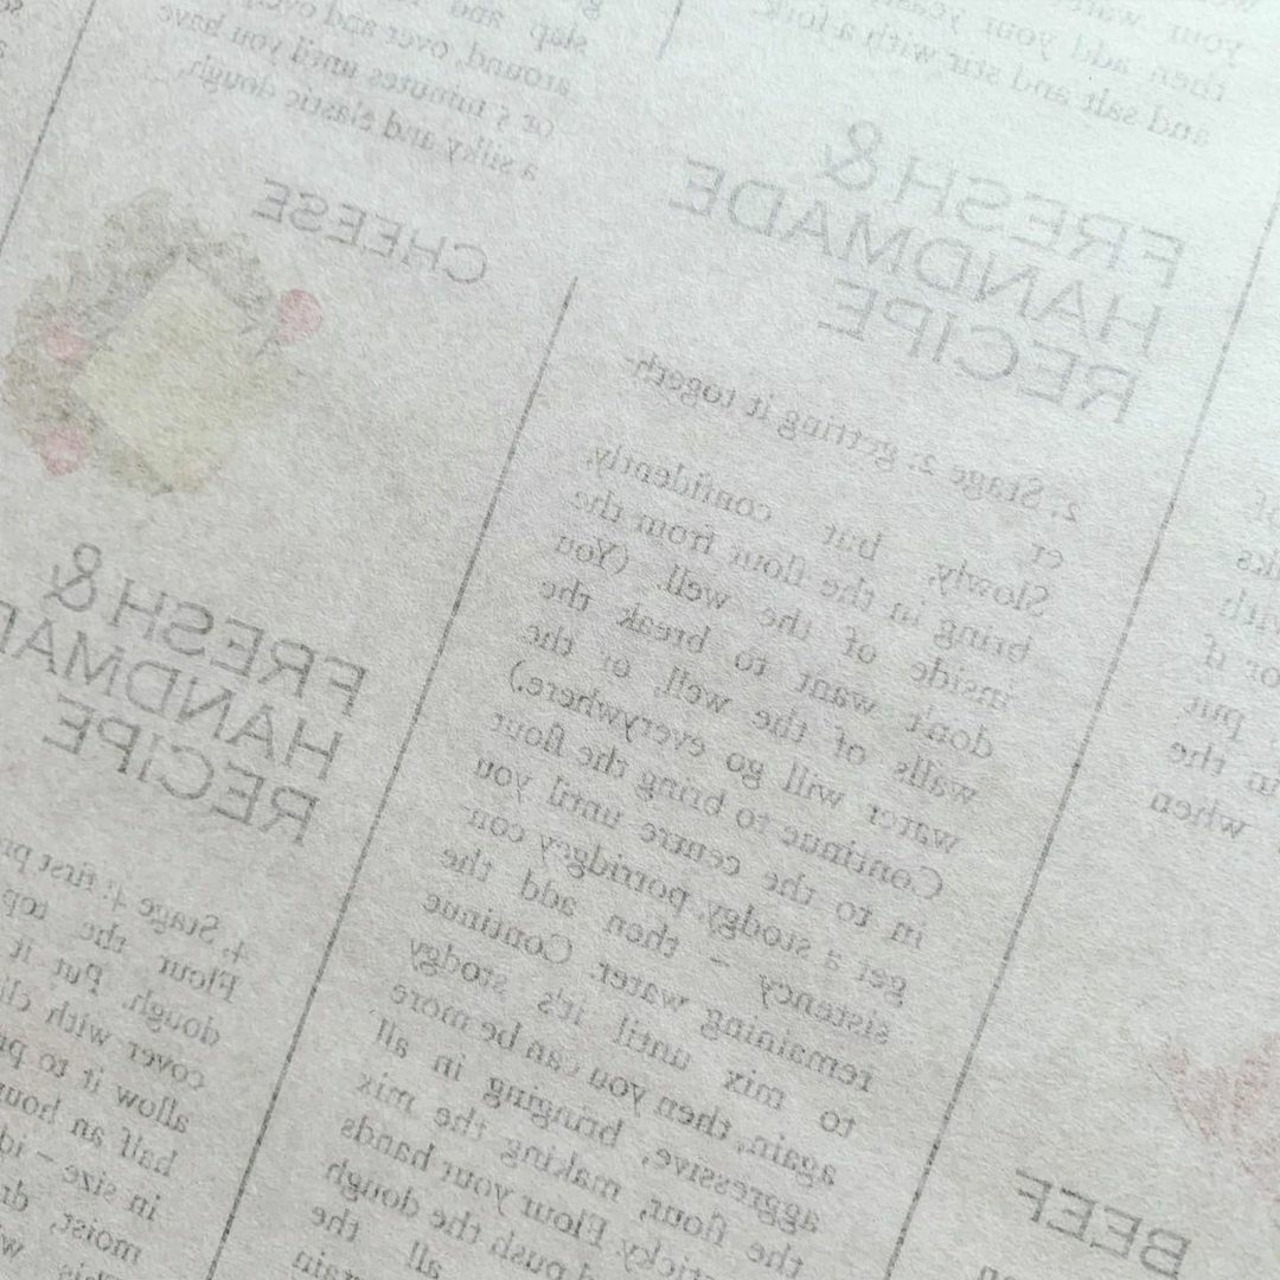 your warm
then add your yeast
and salt and stir with a fork.
or if
put
in the
when
BEEF
FRESH &
HANDMADE
RECIPE
2. Stage 2: getting it togeth-
er
Slowly, but confidently,
bring in the flour from the
inside of the well. (You
don't want to break the
walls of the well, or the
water will go everywhere.)
Continue to bring the flour
in to the centre until you
get a stodgy, porridgey con-
sistency – then add the
remaining water. Continue
to mix until it's stodgy
again, then you can be more
aggressive, bringing in all
the flour, making the mix
sticky. Flour your hands
push the dough
all the
slap and
around, over and over,
or 5 minutes until you have
a silky and elastic dough.
CHEESE
FRESH &
HANDMA
RECIPE
4. Stage 4: first pr
Flour the top
dough. Put it
cover with cli
allow it to pr
half an hour
in size – id
moist, dr